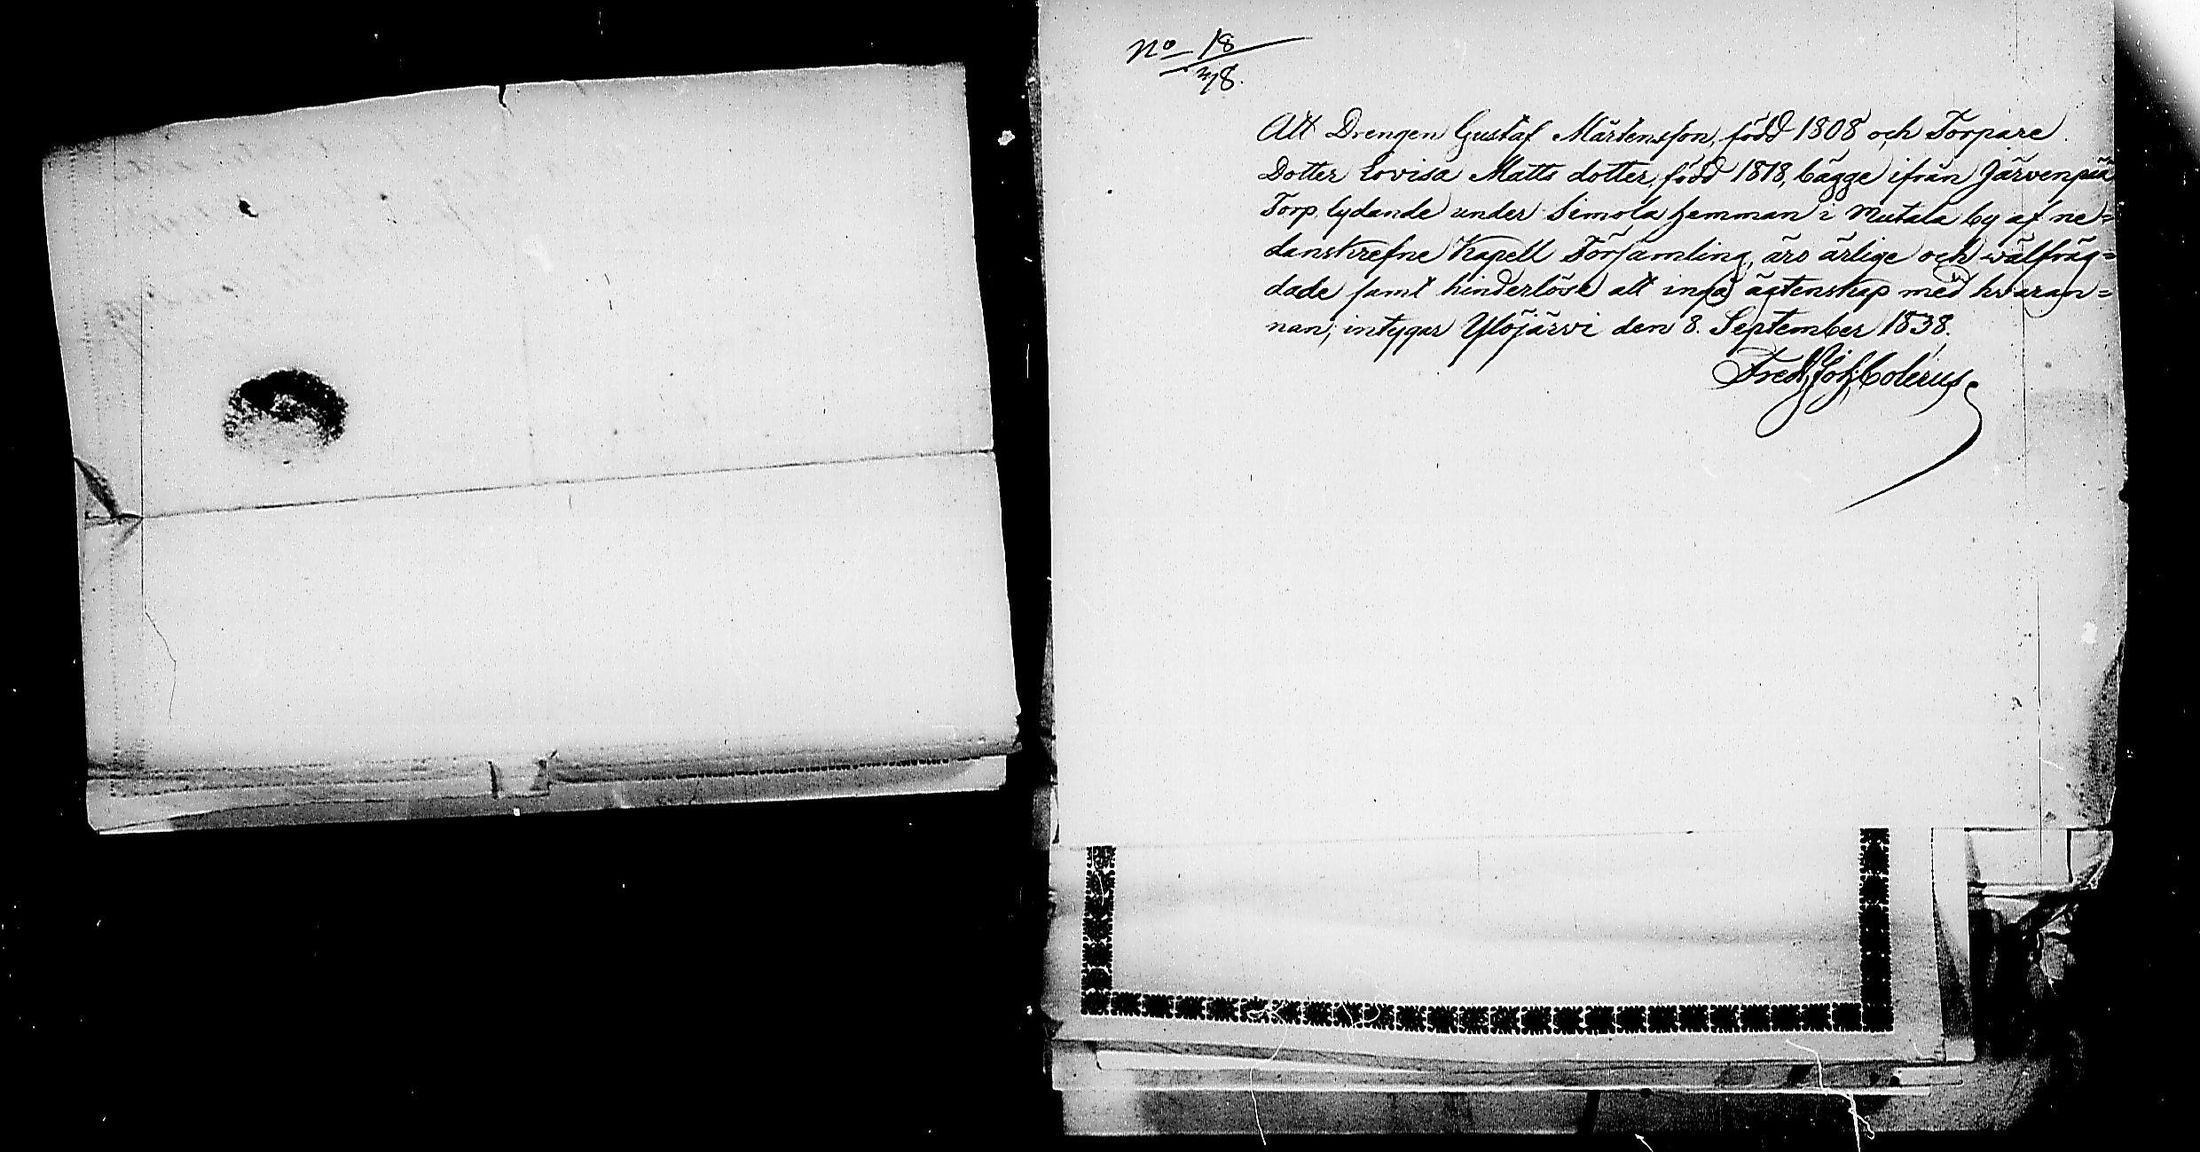 No 18
/38.
Att Drengen Gustaf Mårtensson, född 1808 och Torpare
Dotter Lovisa Matts dotter, född 1818, bägge ifrån Järvenpää
Torp lydande under Simola hemman i Mutala by af ne=
danskrefne Kapell Församling, äro ärlige och wälfräg=
dade samt hinderlöse att ingå ägtenskap med hvaran=
nan; intygar Ylöjärvi den 8. September 1838.
Fredr. Joh. Colerus